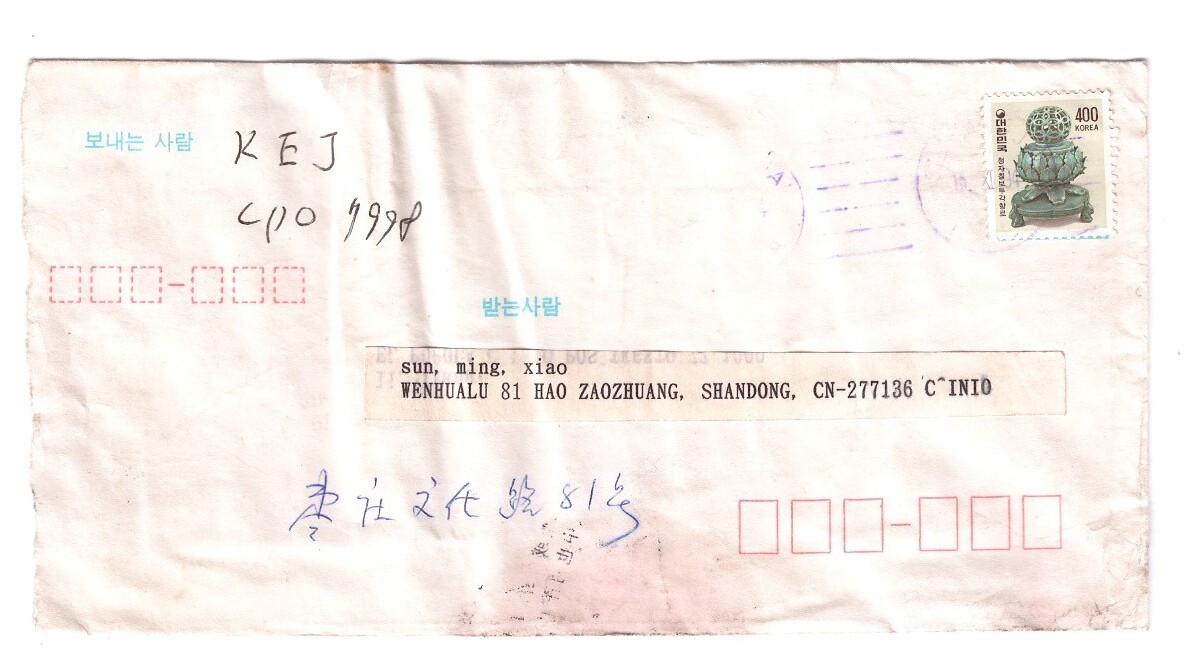 보내는 사람
KEJ
CPO 7998
대한민국
400
KOREA
청자칠보투각향로
받는사람
sun, ming, xiao
WENHUALU 81 HAO ZAOZHUANG, SHANDONG, CN-277136 C^INIO
枣庄文化路81号